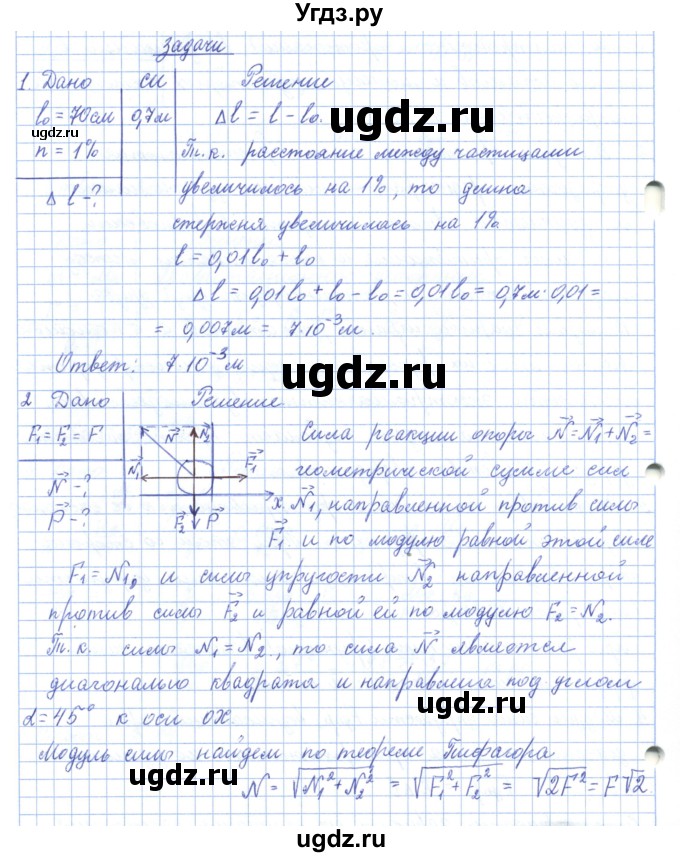 Угдз.ру
Задачи
1. Дано СИ Решение
l₀ = 70 см 0,7 м Δl = l − l₀.
www.ugdz.ru
ugdz.ru
n = 1% Т.к. расстояние между частицами
Δl - ? увеличилось на 1%, то длина
стержня увеличилась на 1%
l = 0,01l₀ + l₀
Δl = 0,01l₀ + l₀ − l₀ = 0,01l₀ = 0,7м·0,01 =
= 0,007м = 7·10⁻³м.
Ответ: 7·10⁻³м
ugdz.ru
2 Дано Решение
F₁ = F₂ = F N⃗ N⃗₂ Сила реакции опоры N⃗=N⃗₁+N⃗₂=
N⃗₁ F⃗₁ геометрической сумме сил
N⃗ - ? x N⃗₁, направленной против силы
P⃗ - ? F⃗₂ P⃗ F⃗₁ и по модулю равной этой силе
ugdz.ru
F₁ = N₁, и силы упругости N⃗₂ направленной
против силы F⃗₂ и равной ей по модулю F₂ = N₂.
Т.к. силы N₁ = N₂, то сила N⃗ является
ugdz.ru
диагональю квадрата и направлена под углом
α = 45° к оси ОХ.
Модуль силы найдем по теореме Пифагора
ugdz.ru
N = √N₁²+N₂² = √F₁²+F₂² = √2F² = F√2
ugdz.ru